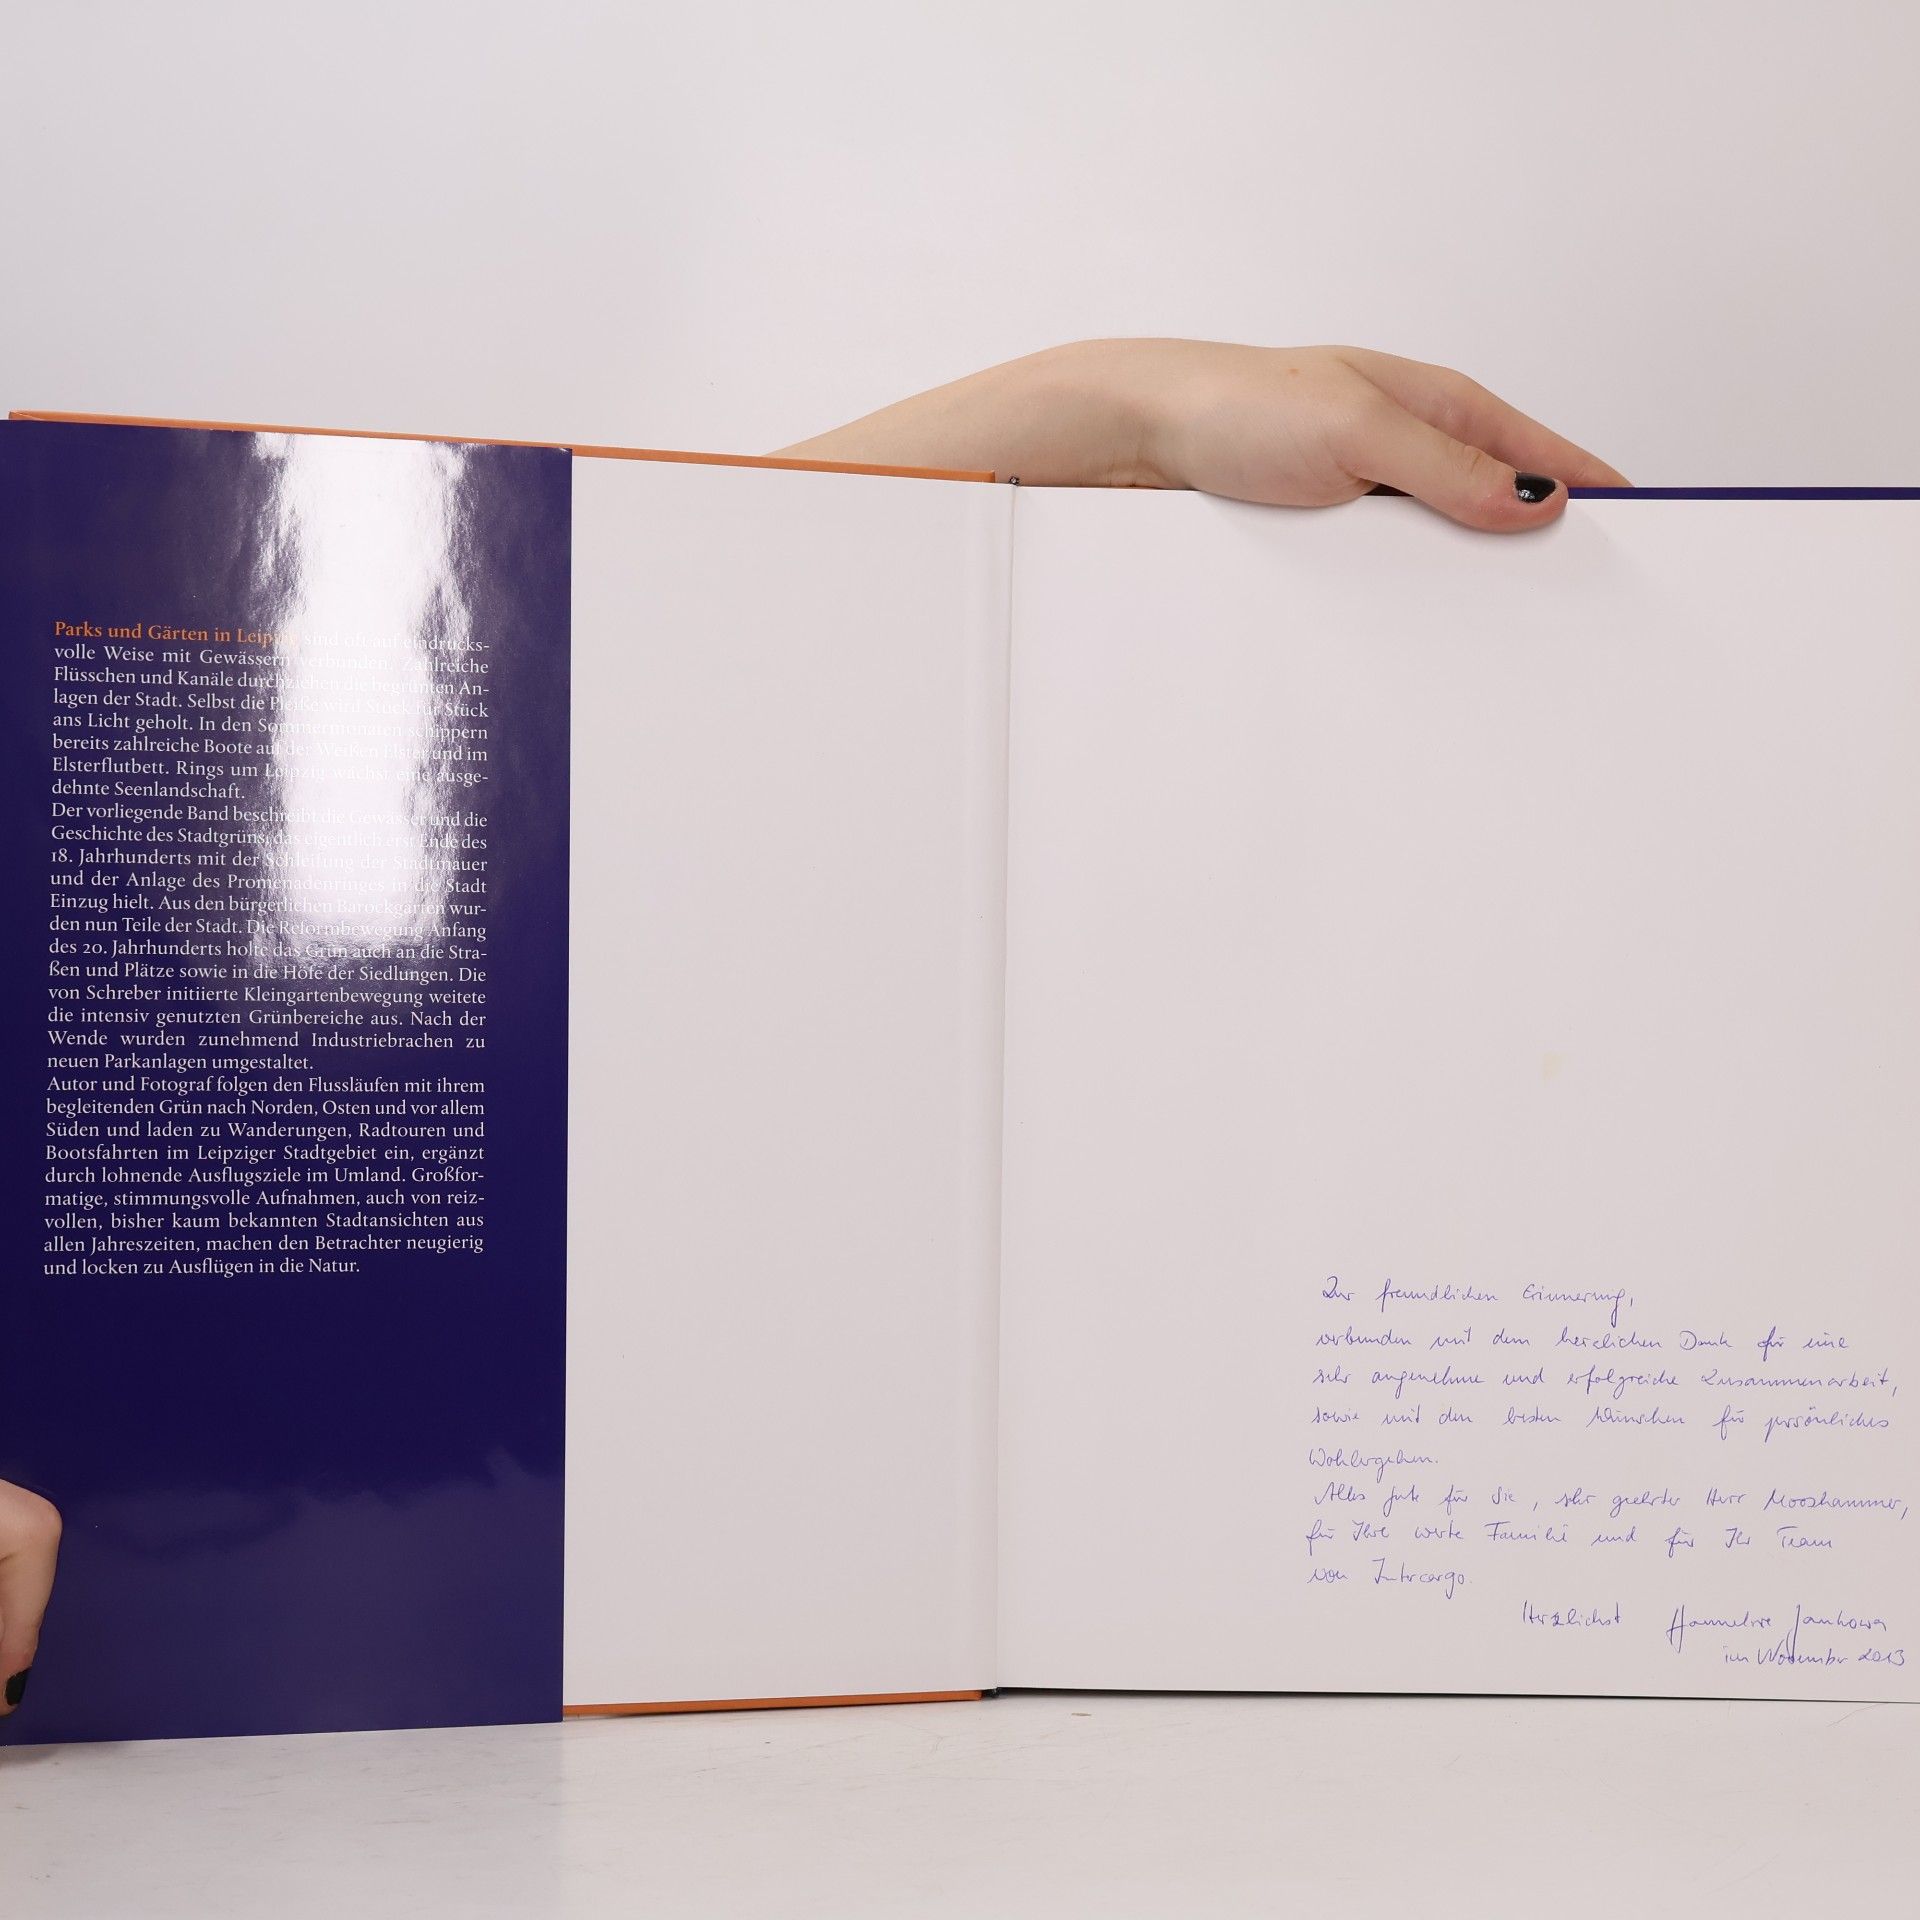 Parks und Gärten in Leipzig sind oft auf eindrucks-
volle Weise mit Gewässern verbunden. Zahlreiche
Flüsschen und Kanäle durchziehen die begrünten An-
lagen der Stadt. Selbst die Pleiße wird Stück für Stück
ans Licht geholt. In den Sommermonaten schippern
bereits zahlreiche Boote auf der Weißen Elster und im
Elsterflutbett. Rings um Leipzig wächst eine ausge-
dehnte Seenlandschaft.
Der vorliegende Band beschreibt die Gewässer und die
Geschichte des Stadtgrüns, das eigentlich erst Ende des
18. Jahrhunderts mit der Schleifung der Stadtmauer
und der Anlage des Promenadenringes in die Stadt
Einzug hielt. Aus den bürgerlichen Barockgärten wur-
den nun Teile der Stadt. Die Reformbewegung Anfang
des 20. Jahrhunderts holte das Grün auch an die Stra-
ßen und Plätze sowie in die Höfe der Siedlungen. Die
von Schreber initiierte Kleingartenbewegung weitete
die intensiv genutzten Grünbereiche aus. Nach der
Wende wurden zunehmend Industriebrachen zu
neuen Parkanlagen umgestaltet.
Autor und Fotograf folgen den Flussläufen mit ihrem
begleitenden Grün nach Norden, Osten und vor allem
Süden und laden zu Wanderungen, Radtouren und
Bootsfahrten im Leipziger Stadtgebiet ein, ergänzt
durch lohnende Ausflugsziele im Umland. Großfor-
matige, stimmungsvolle Aufnahmen, auch von reiz-
vollen, bisher kaum bekannten Stadtansichten aus
allen Jahreszeiten, machen den Betrachter neugierig
und locken zu Ausflügen in die Natur.
Zur freundlichen Erinnerung,
verbunden mit dem herzlichen Dank für eine
sehr angenehme und erfolgreiche Zusammenarbeit,
sowie mit den besten Wünschen für persönliches
Wohlergehen.
Alles Gute für Sie, sehr geehrter Herr Mooshammer,
für Ihre werte Familie und für Ihr Team
von Intercargo.
Herzlichst Hannelore Jankowa
im November 2013